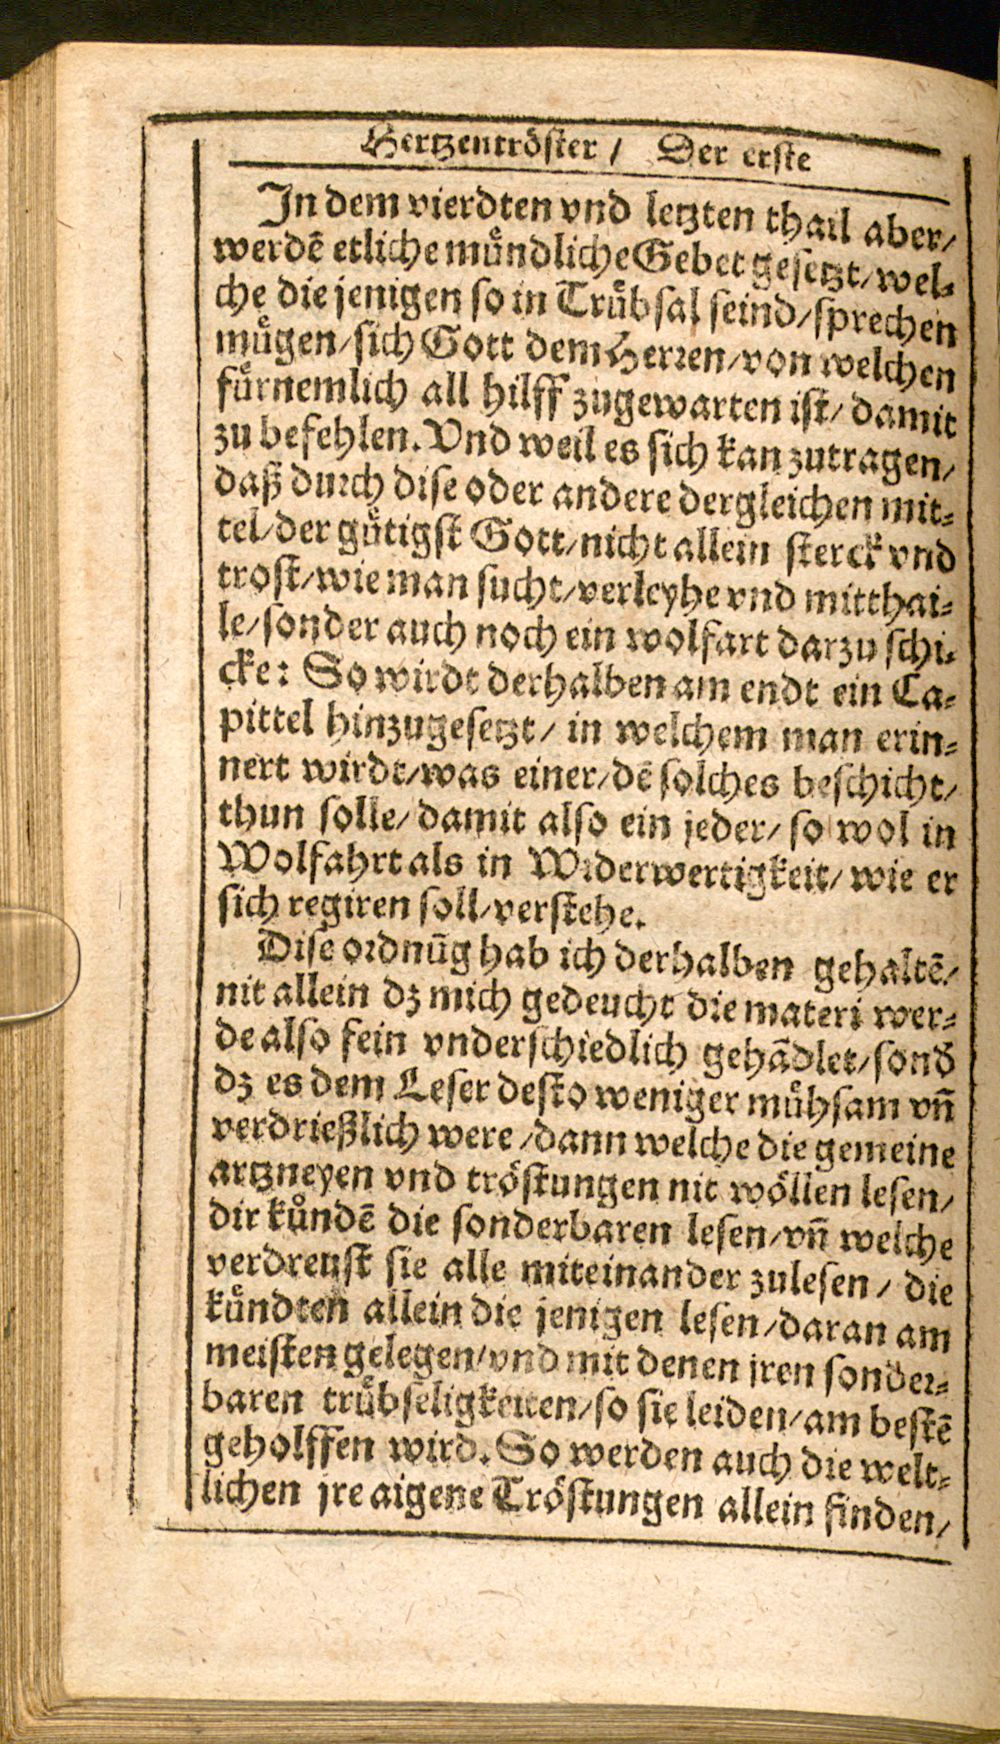 Hertzentröster / Der erste
In dem vierdten vnd letzten thail aber/
werdē etliche mündliche Gebet gesetzt/ wel-
che die jenigen so in Trübsal seind/ sprechen
mügen/ sich Gott dem Herren/ von welchen
fürnemlich all hilff zugewarten ist/ damit
zu befehlen. Vnd weil es sich kan zutragen/
daß durch dise oder andere dergleichen mit-
tel/ der gütigst Gott/ nicht allein sterck vnd
trost/ wie man sucht/ verleyhe vnd mitthai-
le/ sonder auch noch ein wolfart darzu schi-
cke: So wirdt derhalben am endt ein Ca-
pittel hinzugesetzt/ in welchem man erin-
nert wirdt/ was einer/ dē solches beschicht/
thun solle/ damit also ein jeder/ so wol in
Wolfahrt als in Widerwertigkeit/ wie er
sich regiren soll/ verstehe.
Dise ordnūg hab ich derhalben gehaltē/
nit allein dz mich gedeucht die materi wer-
de also fein vnderschiedlich gehādlet/ sond̄
dz es dem Leser desto weniger mühsam vn̄
verdrießlich were/ dann welche die gemeine
artzneyen vnd tröstungen nit wöllen lesen/
dir kündē die sonderbaren lesen/ vn̄ welche
verdreust sie alle miteinander zulesen/ die
kündten allein die jenigen lesen/ daran am
meisten gelegen/ vnd mit denen jren sonder-
baren trübseligkeiten/ so sie leiden/ am bestē
geholffen wird. So werden auch die welt-
lichen jre aigene Tröstungen allein finden/